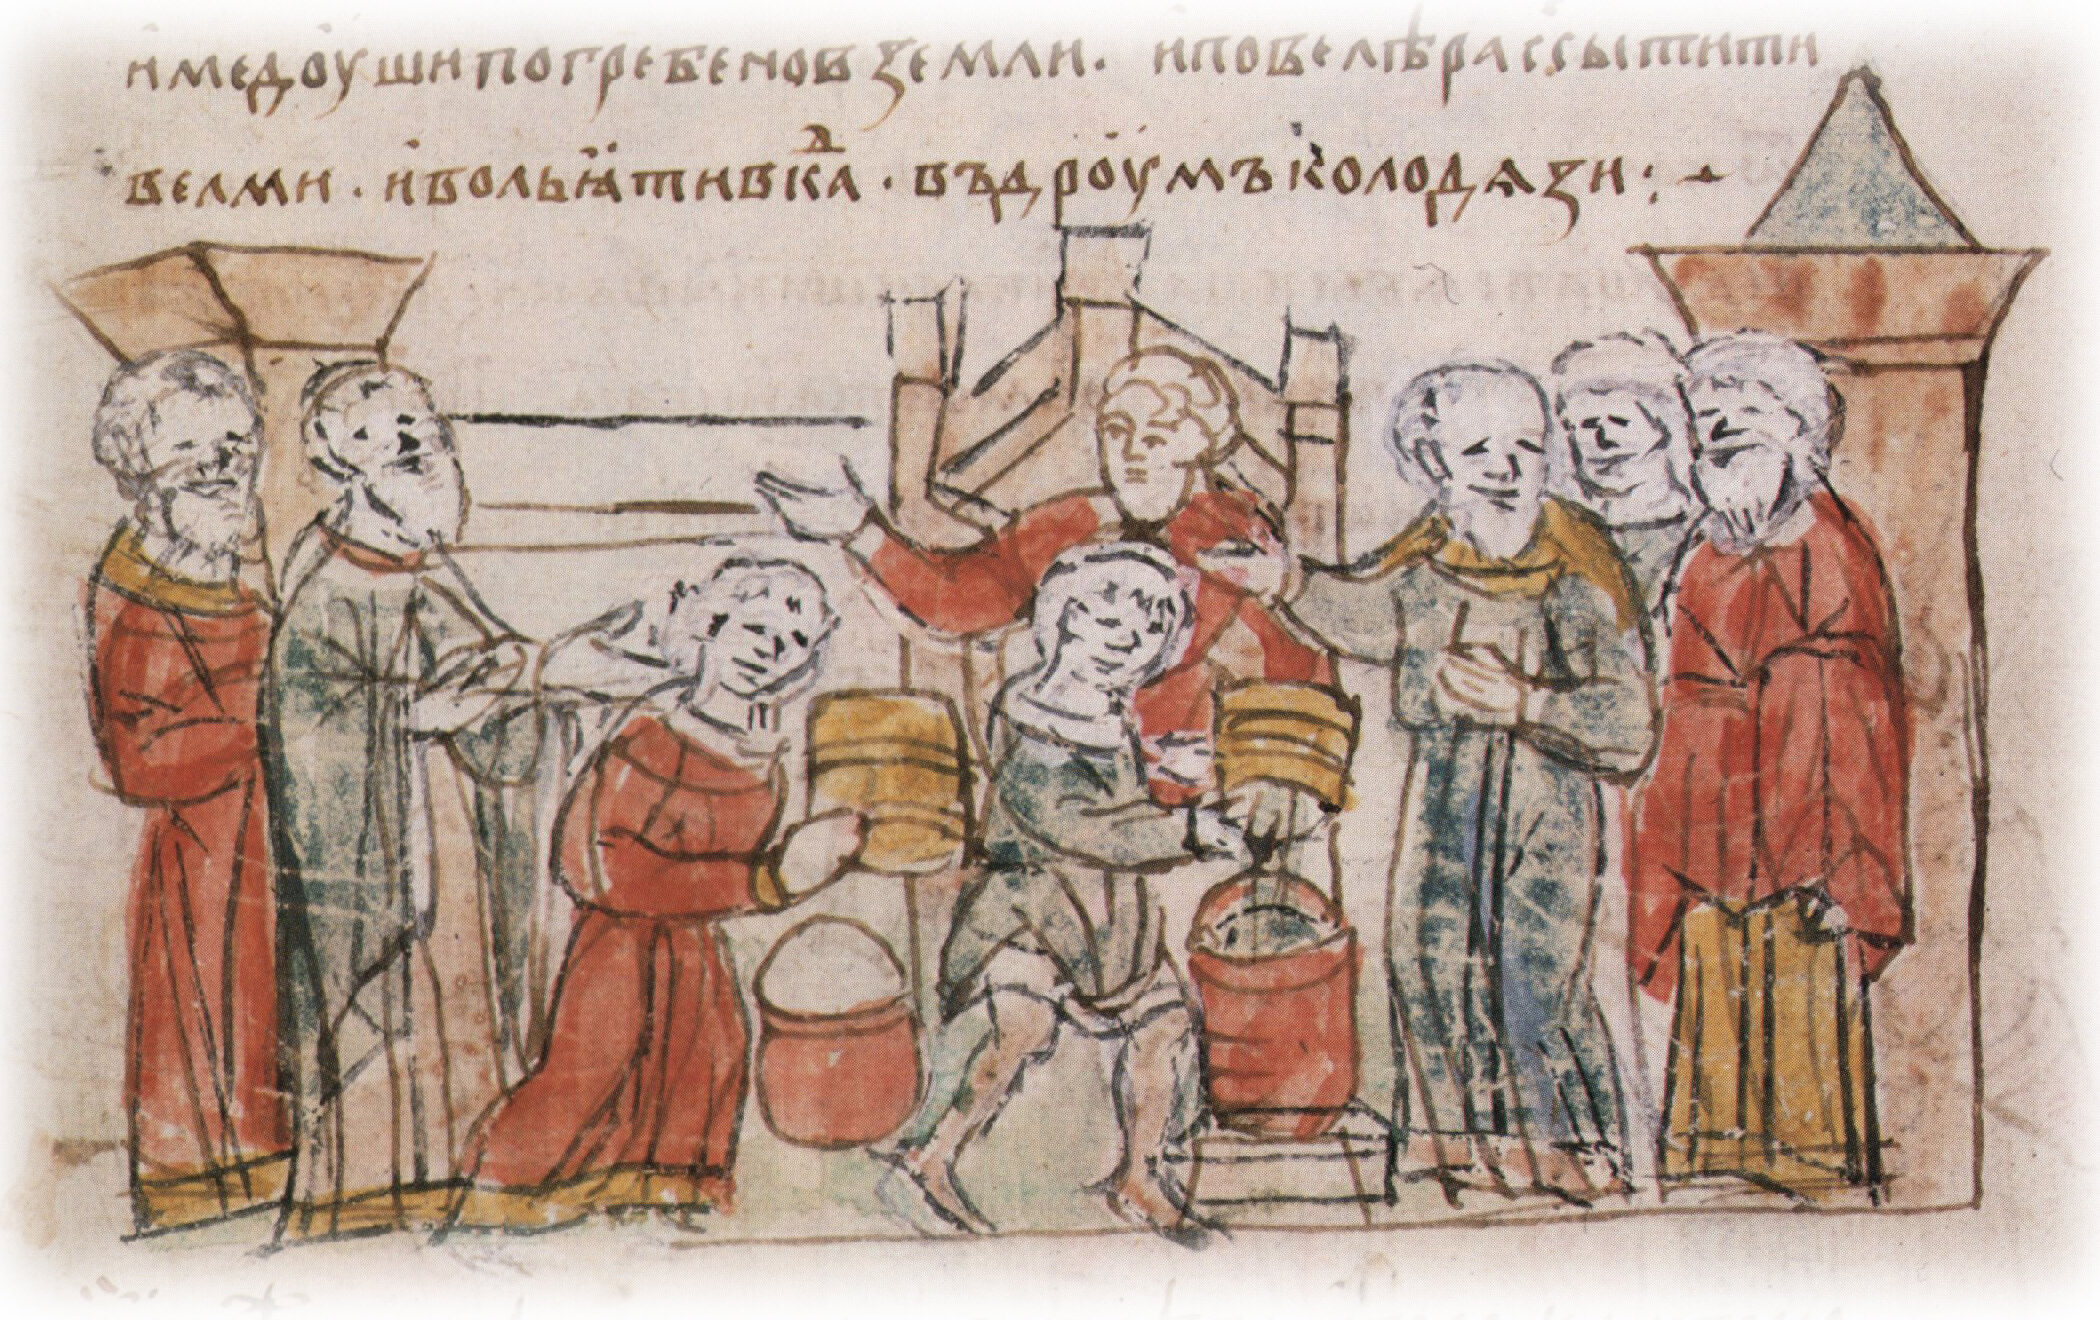 и медоуши погребено в земли . и повелѣ рассытити
велми . и вольꙗти в каⷣ . въ дроумъ колодѧзи :~